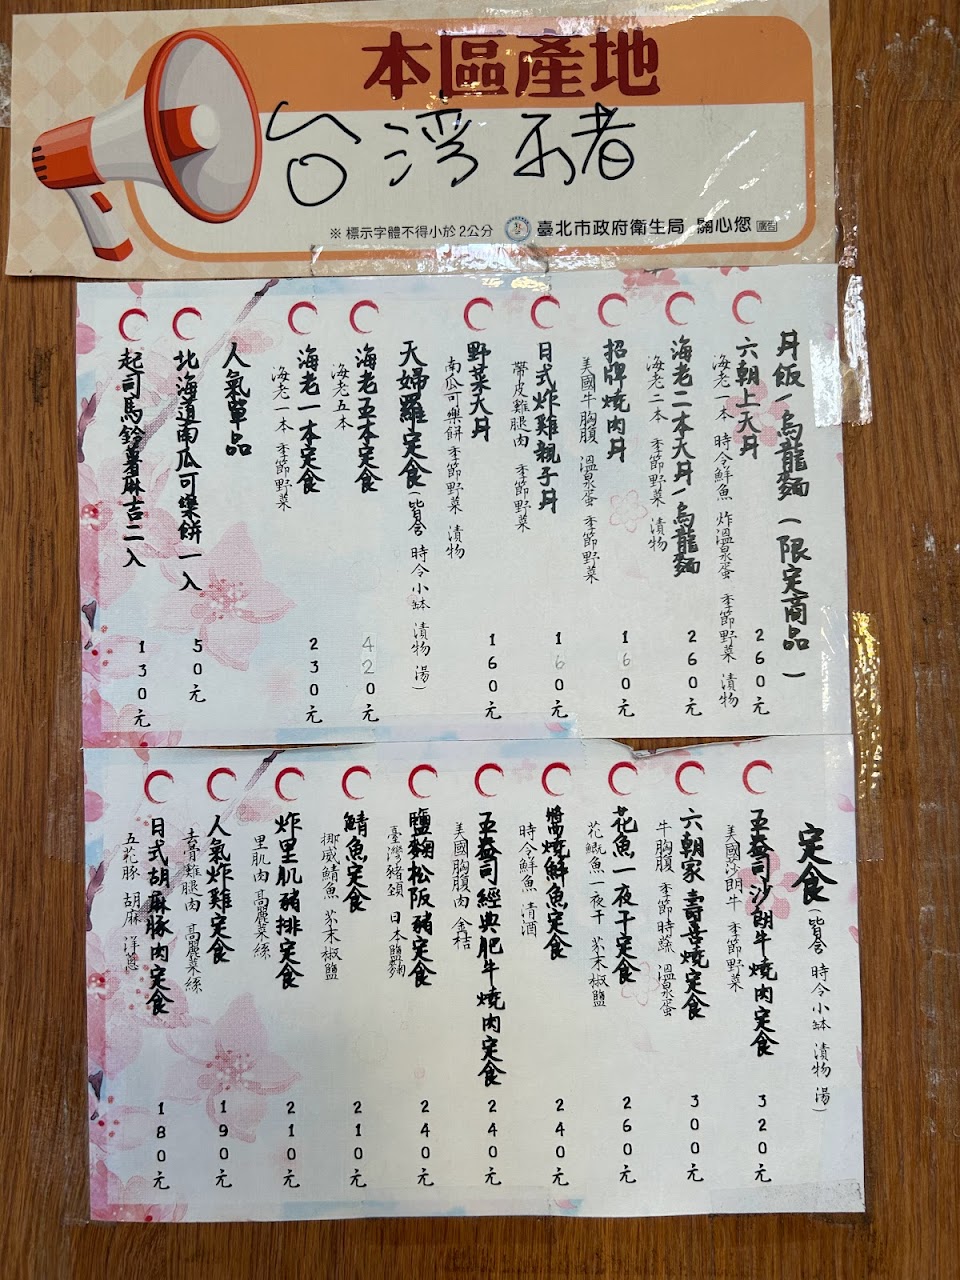 本區產地
台灣豬
※ 標示字體不得小於2公分 臺北市政府衛生局 關心您 廣告
丼飯/烏龍麵(限定商品)
六朝上天丼 260元
海老一本 時令鮮魚 炸溫泉蛋 季節野菜 漬物
海老二本天丼/烏龍麵 260元
海老二本 季節野菜 漬物
招牌燒肉丼 160元
美國牛胸腹 溫泉蛋 季節野菜
日式炸雞親子丼 160元
帶皮雞腿肉 季節野菜
野菜天丼 160元
南瓜可樂餅 季節野菜 漬物
天婦羅定食(皆含 時令小缽 漬物 湯)
海老五本定食 420元
海老五本
海老一本定食 230元
海老一本 季節野菜
人氣單品
北海道南瓜可樂餅一入 50元
起司馬鈴薯麻吉二入 130元
定食(皆含 時令小缽 漬物 湯)
五盎司沙朗牛燒肉定食 320元
美國莎朗牛 季節野菜
六朝家壽喜燒定食 300元
牛胸腹 季節時蔬 溫泉蛋
花魚一夜干定食 260元
花鯽魚一夜干 芥末椒鹽
醬燒鮮魚定食 240元
時令鮮魚 清酒
五盎司經典肥牛燒肉定食 240元
美國胸腹肉 金桔
鹽麴松阪豬定食 240元
臺灣豬頸 日本鹽麴
鯖魚定食 210元
挪威鯖魚 芥末椒鹽
炸里肌豬排定食 210元
里肌肉 高麗菜絲
人氣炸雞定食 190元
去骨雞腿肉 高麗菜絲
日式胡麻豚肉定食 180元
五花豚 胡麻 洋蔥